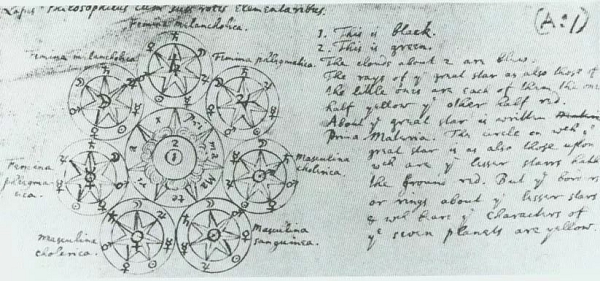 Lapis Philosophicus cum suis rotis elementaribus.
Femina melancholica.
Femina melancholica.
Femina phlegmatica.
Femina
phlegma-
tica.
Masculina
cholerica.
Masculina
cholerica.
Masculina
sanguinea.
2
1
(A:1)
1. This is black.
2. This is green.
The clouds about 2 are blew.
The rays of yᵉ great star as also those of
the little ones are each of them the one
half yellow yᵉ other half red.
About yᵉ great star is written
Prima Materia. The circle on wᶜʰ yᵉ
great star is as also those upon
wᶜʰ are yᵉ lesser starrs hath
the ground red. But yᵉ borders
or rings about yᵉ lesser stars
& wᶜʰ bears yᵉ characters of
yᵉ seven planets are yellow.